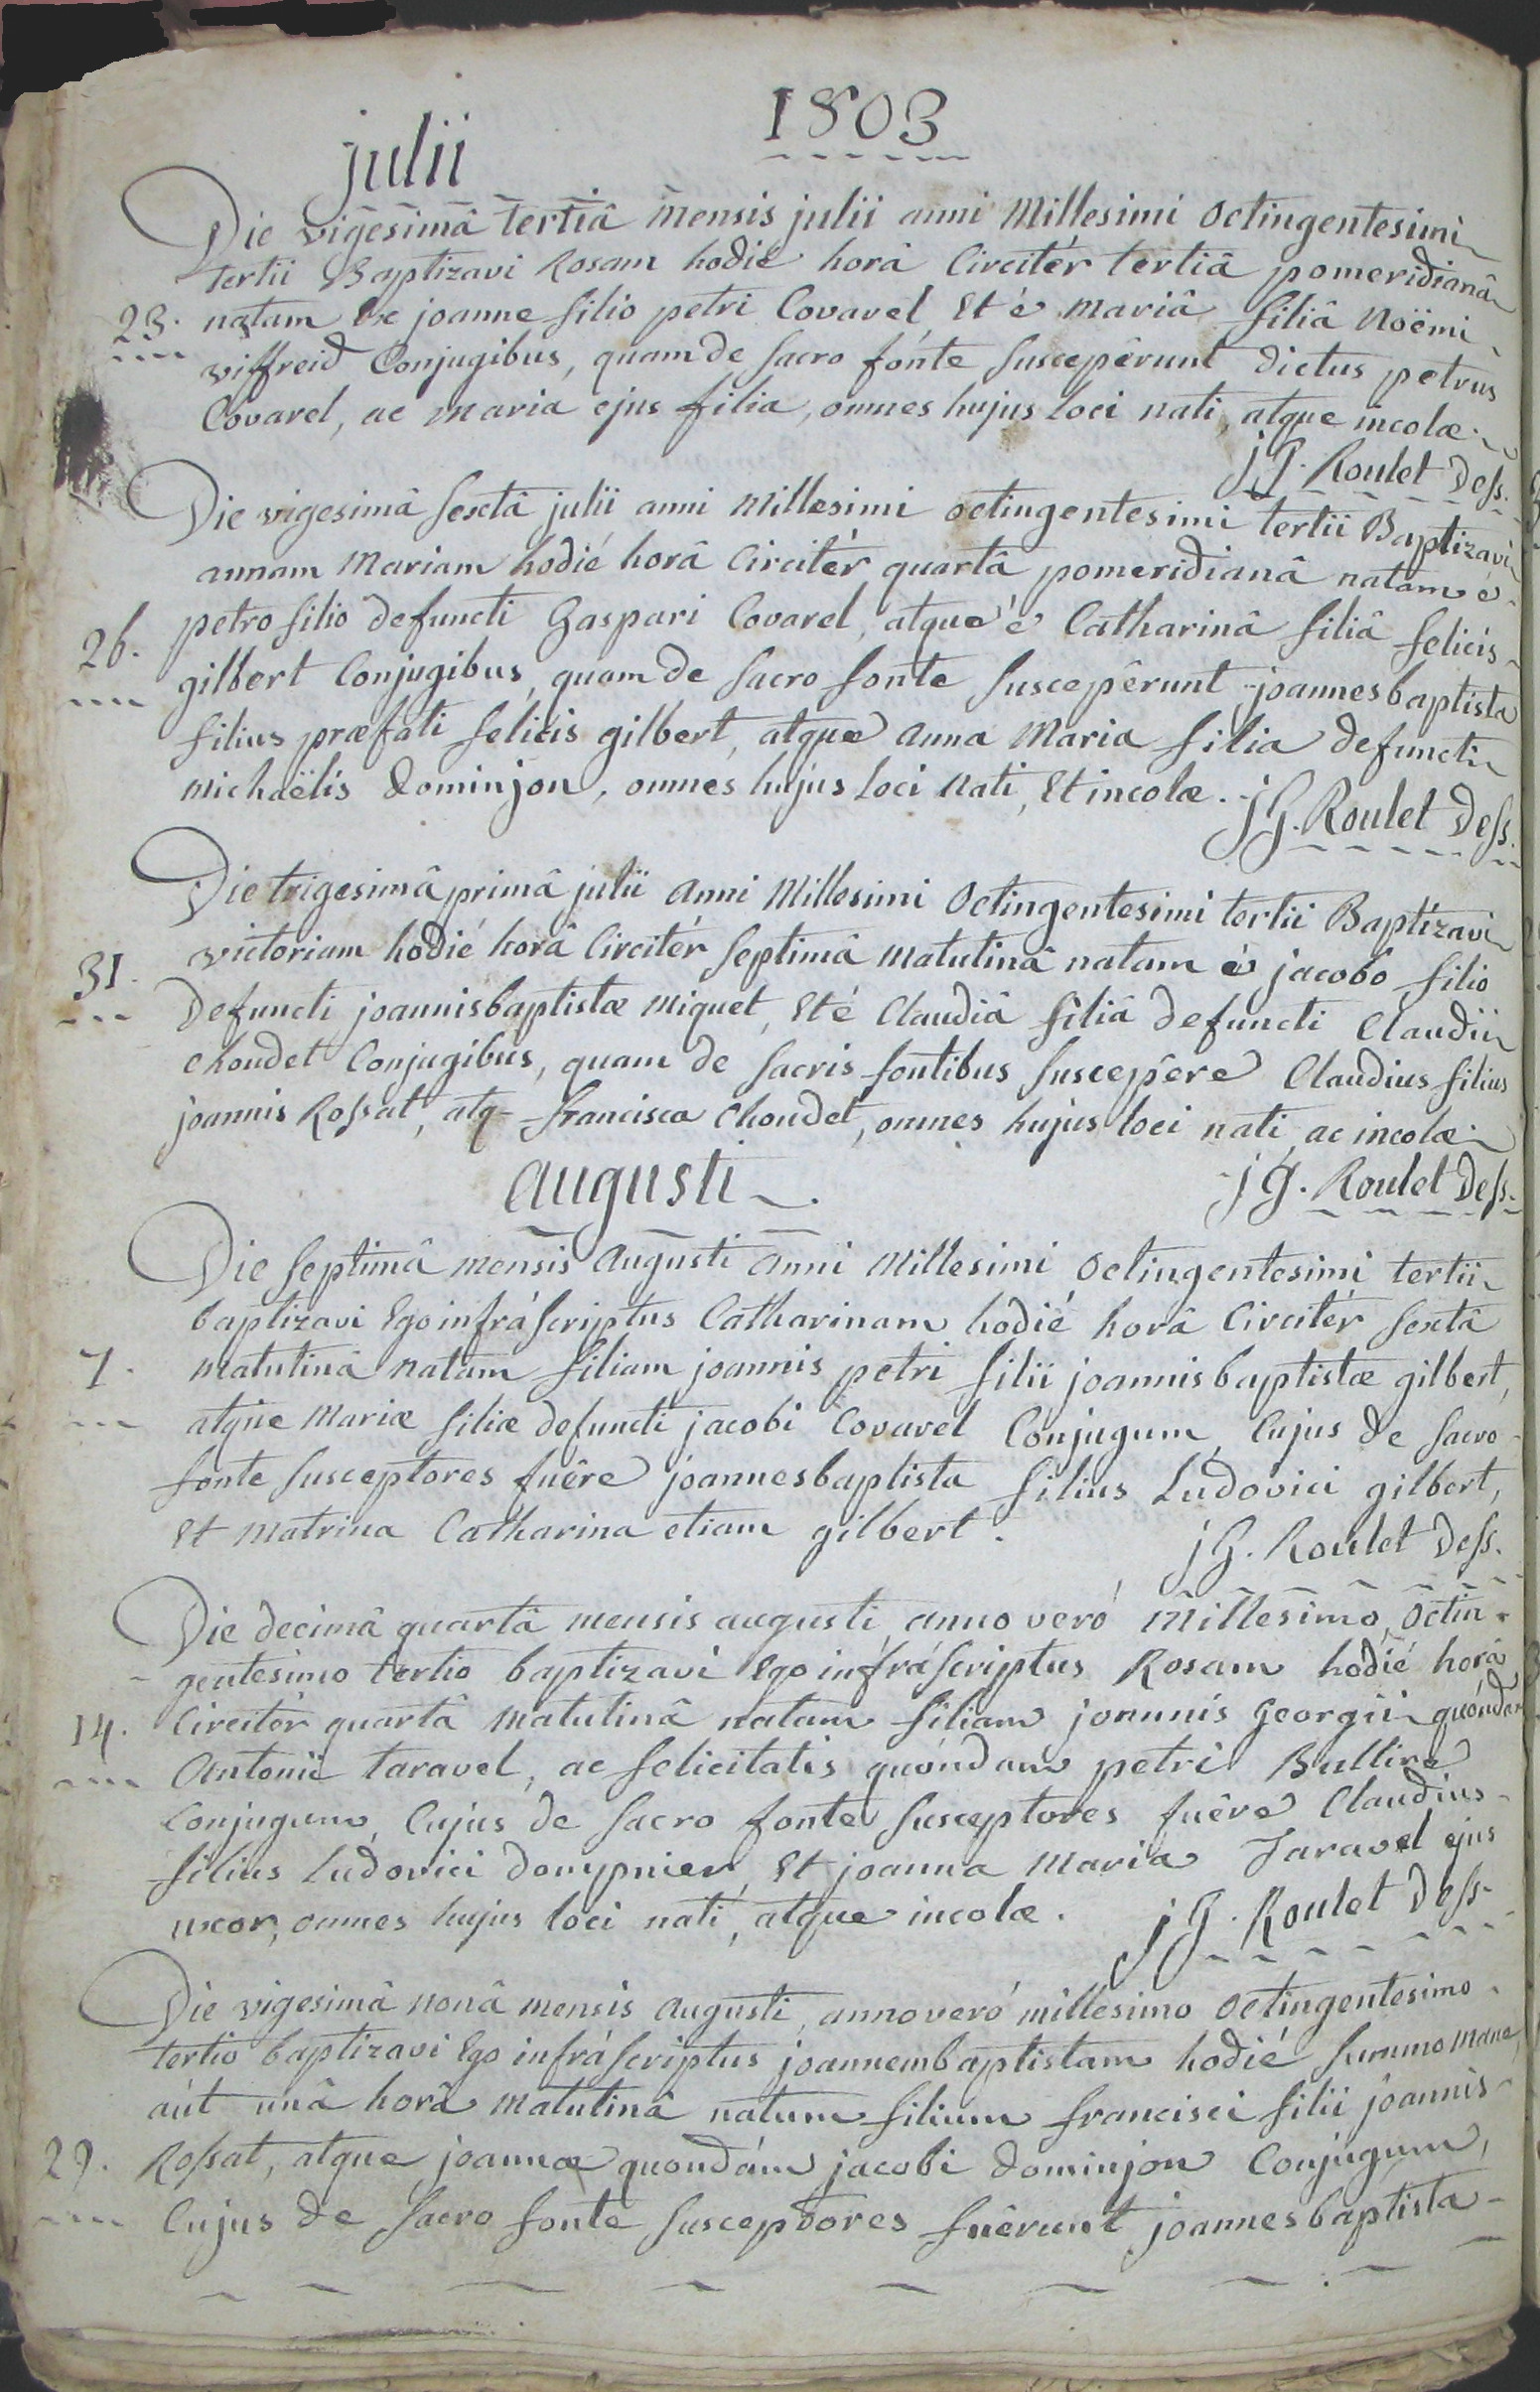 1803
julii
Die vigesimâ tertiâ mensis julii anni Millesimi Octingentesimi
tertii Baptizavi Rosam hodié horâ Circitér tertiâ pomeridianâ
23. natam ex joanne filio petri Covarel, Et é mariâ filiâ Noëmi
viffreid Conjugibus, quam de sacro fonte suscepêrunt dictus petrus
Covarel, ac maria ejus filia, omnes hujus loci nati, atque incolæ.
jG. Roulet Dess.
Die vigesimâ sextâ julii anni Millesimi octingentesimi tertii Baptizavi
annam Mariam hodié horâ Circitér quartâ pomeridianâ natam é
petro filio defuncti Gaspari Covarel, atque é Catharinâ filiâ felicis
26. gilbert Conjugibus, quam de sacro fonte suscepêrunt joannes baptista
filius præfati felicis gilbert, atque anna Maria filia defuncti
michaëlis Dominjon, omnes hujus loci nati, Et incolæ.
jG. Roulet Dess.
Die trigesimâ primâ julii anni Millesimi Octingentesimi tertii Baptizavi
victoriam hodié horâ Circitér septimâ matutinâ natam é jacobo filio
31. Defuncti joannisbaptistæ miquet, Et é Claudiâ filiâ defuncti Claudii
choudet Conjugibus, quam de sacris fontibus suscepêre Claudius filius
joannis Rossat, atq- francisca choudet, omnes hujus loci nati, ac incolæ.
augusti.
jG. Roulet Dess.
Die septimâ mensis Augusti anni Millesimi Octingentesimi tertii
baptizavi Ego infráscriptus Catharinam hodié horâ Circitér sextâ
7. matutinâ natam filiam joannis petri filii joannisbaptistæ gilbert,
atque Mariæ filiæ defuncti jacobi Covarel Conjugum, Cujus de sacro
fonte susceptores fuêre joannesbaptista filius Ludovici gilbert,
Et matrina Catharina etiam gilbert.
jG. Roulet Dess.
Die decimâ quartâ mensis augusti, anno veró Millesimo, Octin-
gentesimo tertio baptizavi Ego infráscriptus Rosam hodié horâ
14. Circitér quartâ matutinâ natam filiam joannis Georgii quóndam
Antonii taravel, ac felicitatis quóndam petri Bullire
Conjugum, Cujus de sacro fonte susceptores fuêre Claudius
filius Ludovici dompnier, Et joanna Maria Taravel ejus
uxor, omnes hujus loci nati, atque incolæ.
jG. Roulet Dess.
Die vigesimâ nonâ mensis Augusti, anno veró millesimo Octingentesimo
tertio baptizavi Ego infráscriptus joannembaptistam hodié summo mane,
aút unâ horâ matutinâ natum filium francisci filii joannis
29. Rossat, atque joannæ quondám jacobi dominjon Conjugum,
Cujus de sacro fonte susceptores fuêrunt joannesbaptista-